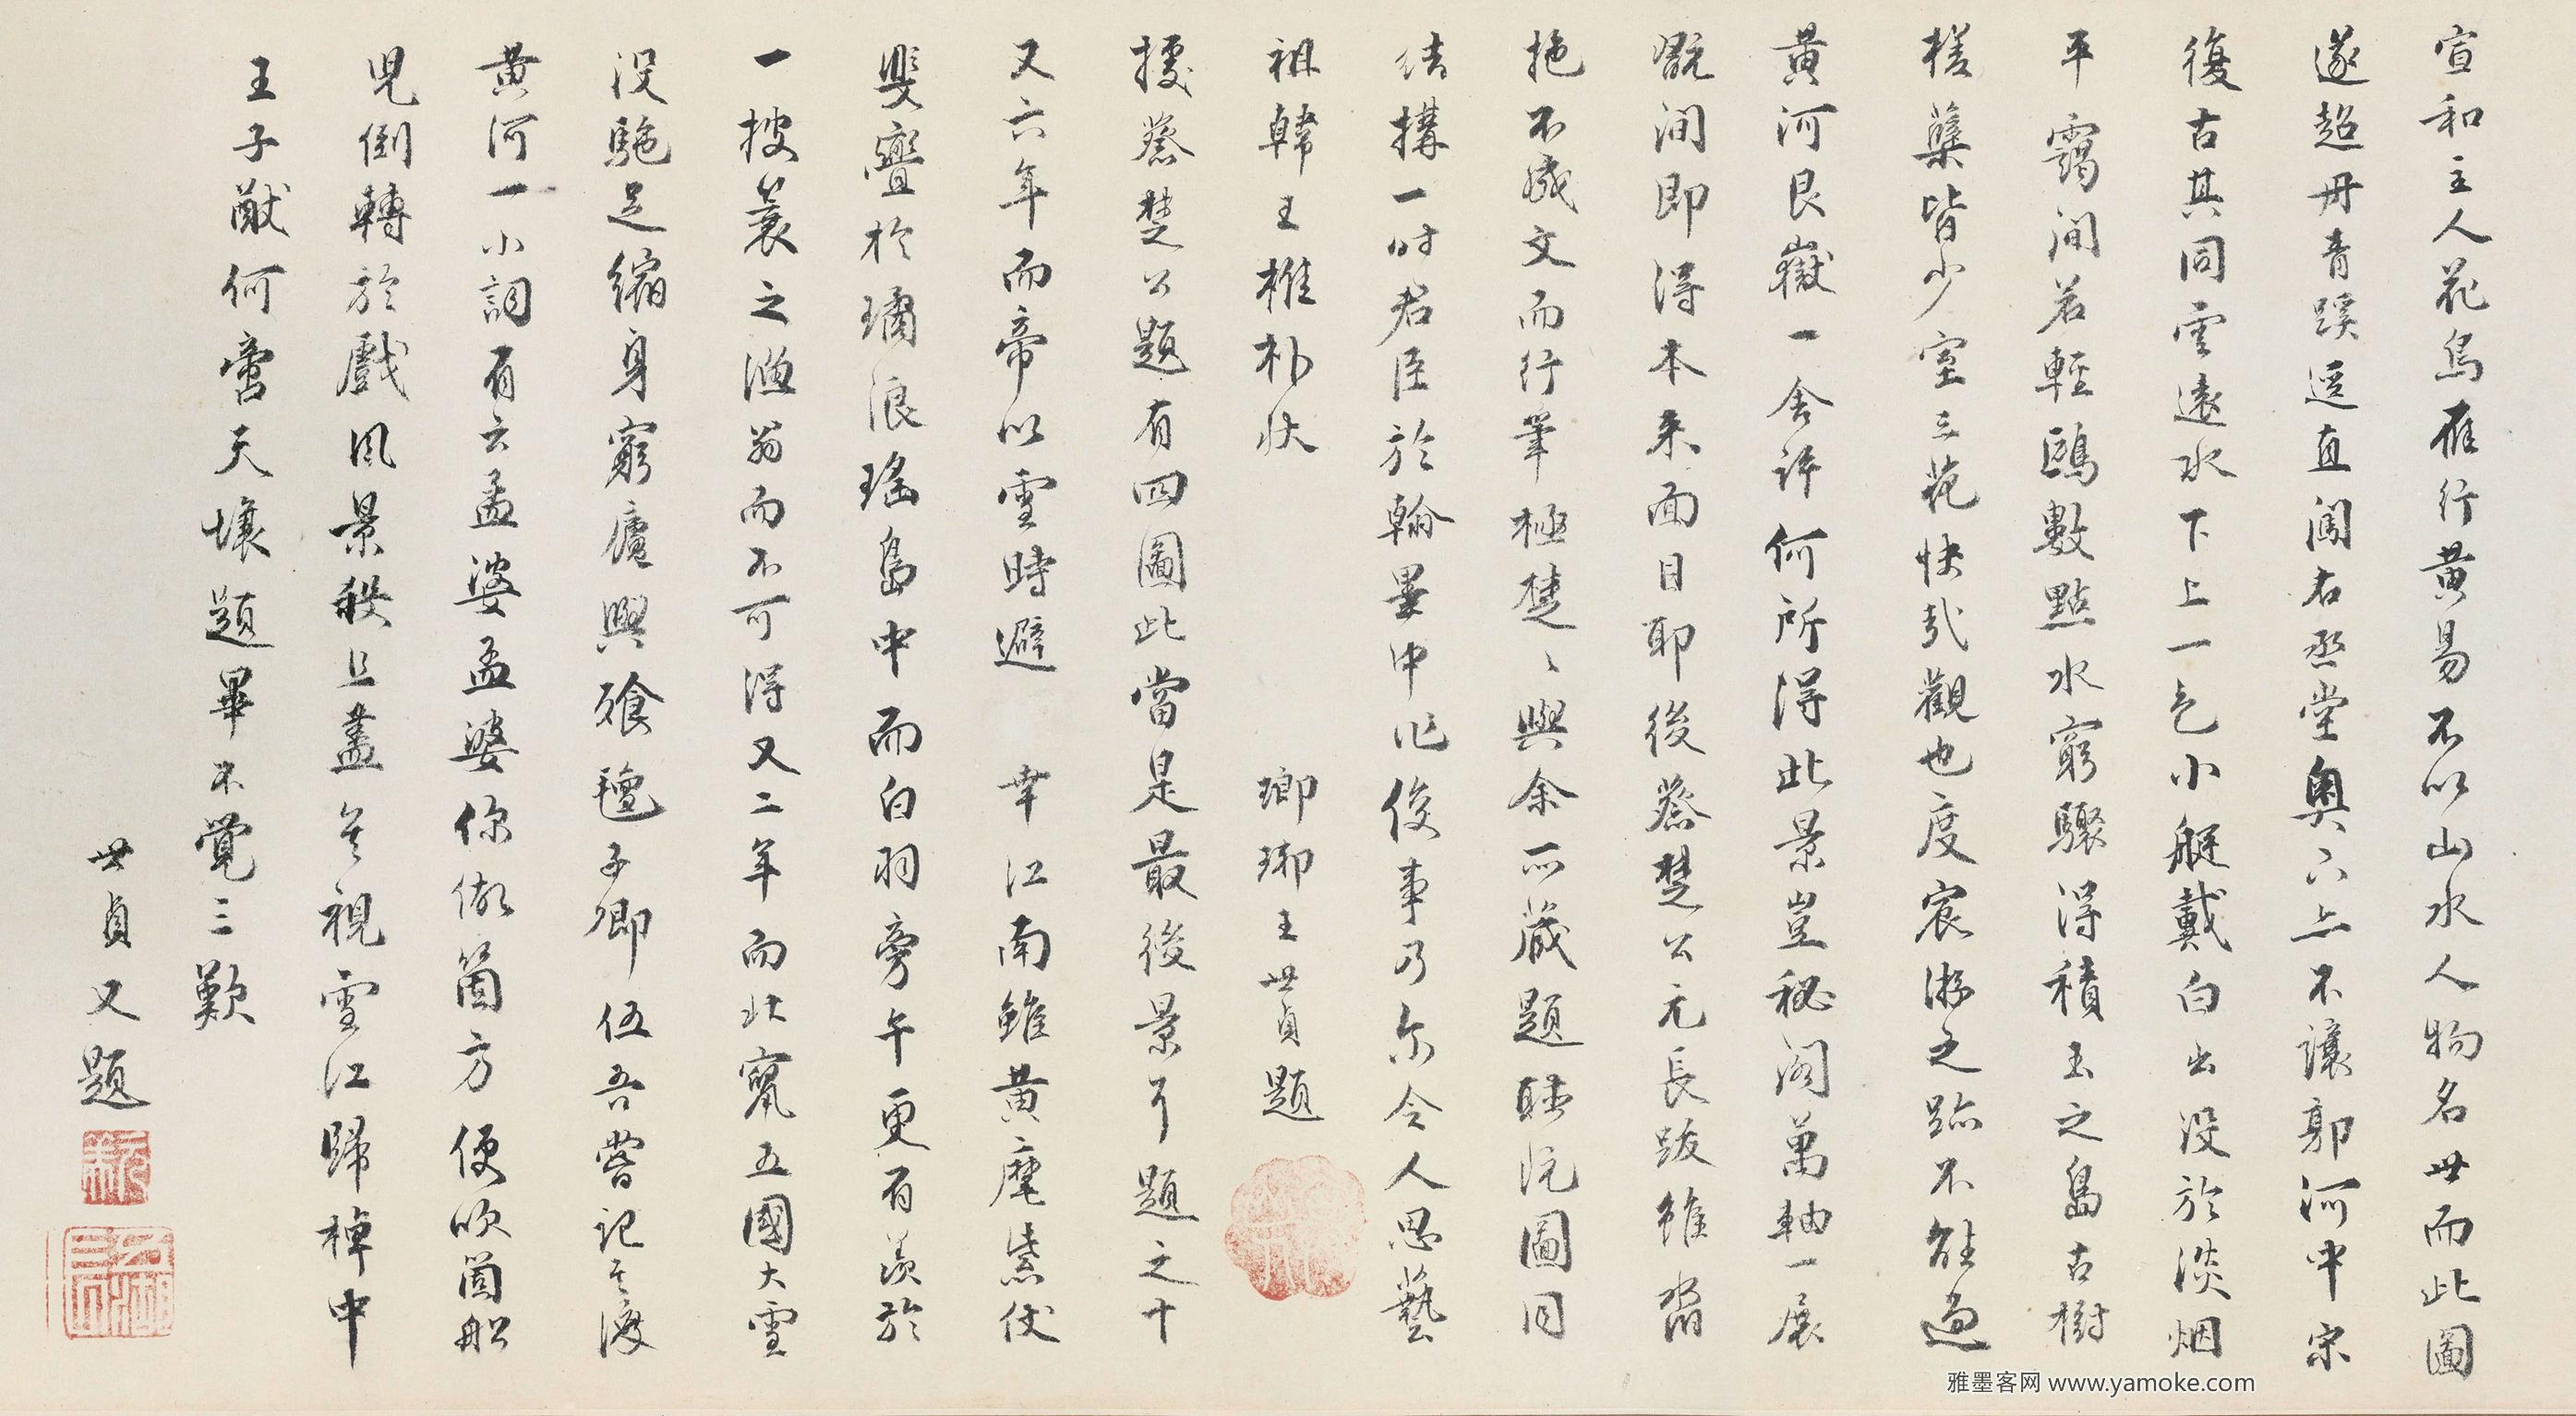 宣和主人花鳥雁行黃易不以山水人物名世而此圖
遂超丹青蹊逕直闖右丞堂奧下亦不讓郭河中宋
復古其同雲遠水下上一色小艇戴白出没於淡烟
平靄間若輕鷗數點水窮驟得積玉之島古樹
槎蘖皆少室三花快哉觀也度宸游之跡不能過
黃河艮嶽一舍許何所得此景豈秘閣萬軸一展
翫間即得本来面目耶後蔡楚公元長跋雖
拖不成文而行筆極楚楚與余所藏題聽阮圖同
結構一时君臣於翰墨中作俊事乃尔令人思藝
祖韓王椎朴狀
瑯琊王世貞題
據蔡楚公題有四圖此當是最後景耳題之十
又六年而帝以雪時避 幸江南雖黃麾紫仗
斐亹於璚浪瑤島中而白羽旁午更有羨於
一披蓑之漁翁而不可得又二年而北竄五國大雪
没駞足縮身穹廬與飧氊子卿伍吾嘗記其渡
黃河一小詞有云孟婆孟婆你做箇方便吹箇船
児倒轉於戲風景殺且盡矣視雪江歸棹中
王子猷何啻天壤題畢不覺三歎
世貞又題
雅墨客网 www.yamoke.com